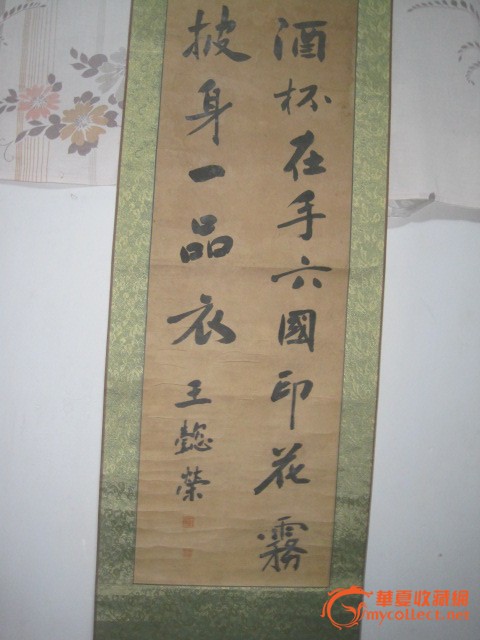 酒杯在手六國印花霧
披身一品衣
王懿榮
華夏收藏網
mycollect.net